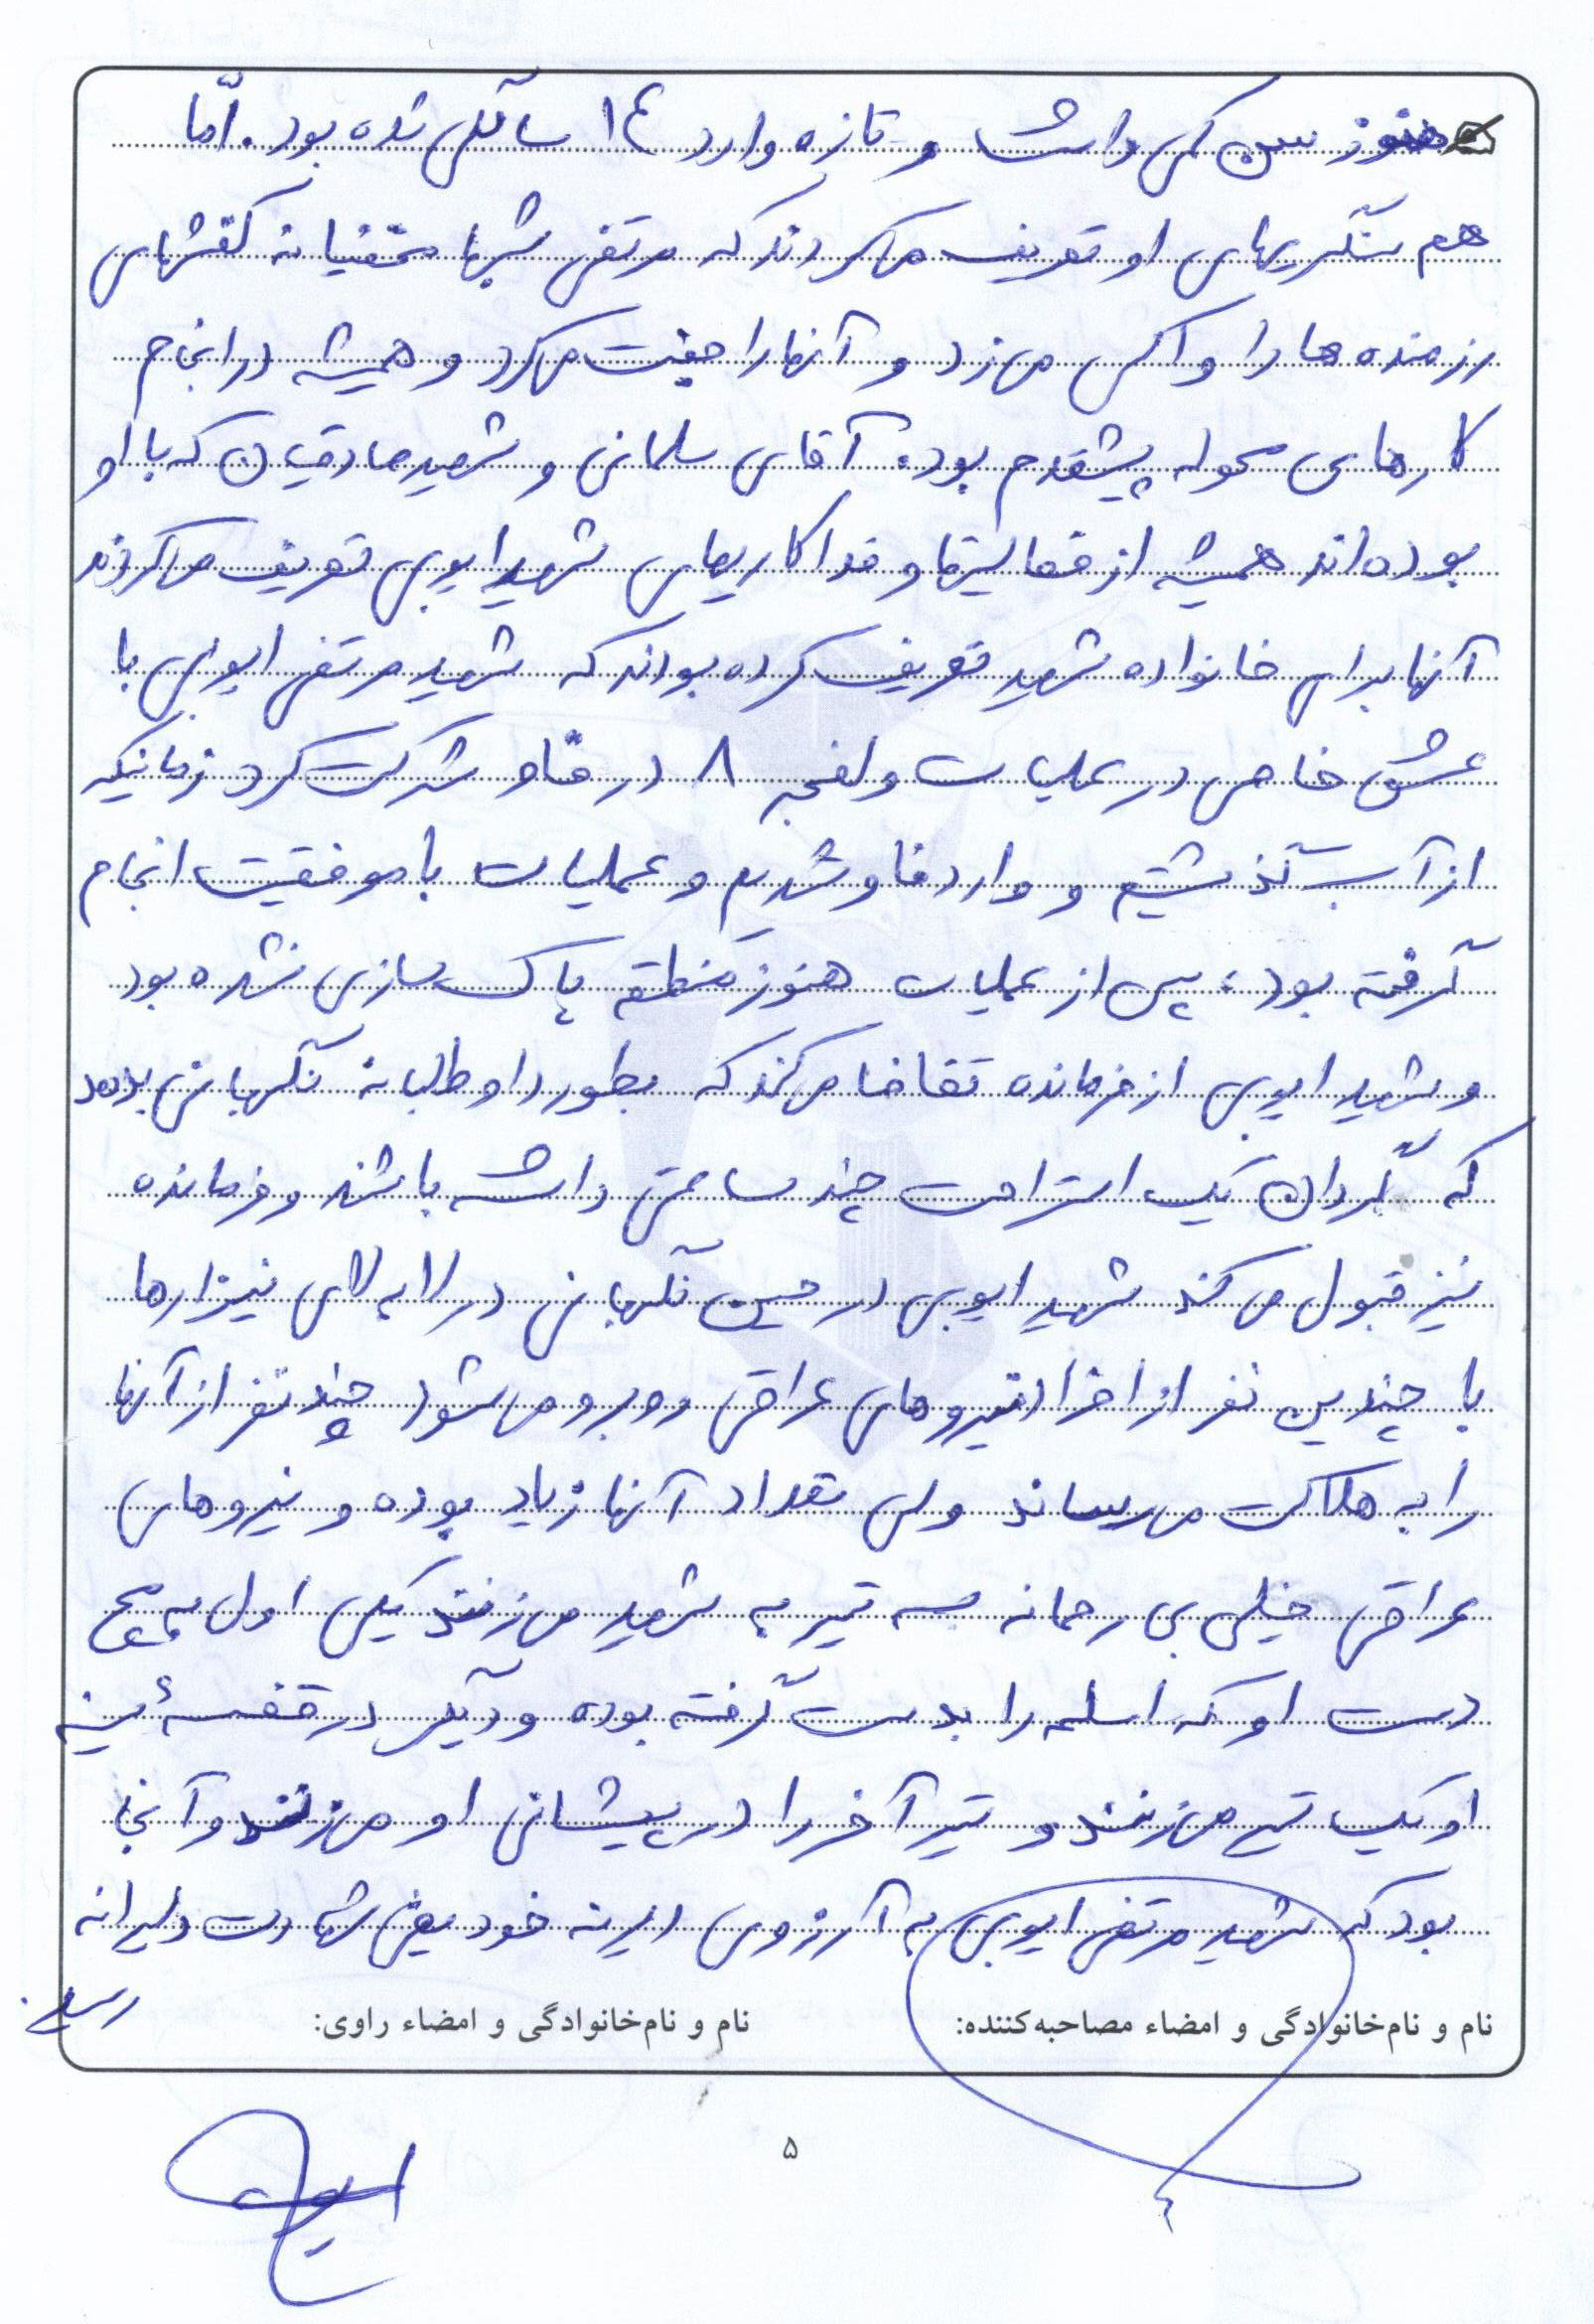 هنوز سن کمی داشت و تازه وارد ۱۴ سالگی شده بود. امّا
هم سنگریهای او تعریف می‌کردند که مرتضی شبها مخفیانه کفشهای
رزمنده ها را واکس می‌زد و آنها را جفت می‌کرد و همیشه در انجام
کارهای محوله پیشقدم بود. آقای سلمانی و شهید صادقیان که با او
بوده‌اند همیشه از فعالیتها و فداکاریهای شهید ایوبی تعریف می‌کردند
آنها برای خانواده شهید تعریف کرده بودند که شهید مرتضی ایوبی با
عشق خاصی در عملیات ولفجر ۸ در فاو شرکت کرد زمانیکه
از آب گذشتیم و وارد فاو شدیم و عملیات با موفقیت انجام
گرفته بود، پس از عملیات هنوز منطقه پاک سازی نشده بود
و شهید ایوبی از فرمانده تقاضا می‌کند که بطور داوطلبانه نگهبانی بدهد
که گردان یک استراحت چند ساعتی داشته باشند و فرمانده
نیز قبول می‌کند شهید ایوبی در حین نگهبانی در لابه لای نیزارها
با چندین نفر از افراد نیروهای عراقی روبرو می‌شود چند نفر از آنها
را به هلاکت می‌رساند ولی تعداد آنها زیاد بوده و نیروهای
عراقی خیلی بی رحمانه سه تیر به شهید می‌زنند یکی اول به مچ
دست او که اسلحه را بدست گرفته بوده و دیگر در قفسهٔ سینه
او یک تیر می‌زنند و تیر آخر را در پیشانی او می‌زنند و آنجا
بود که شهید مرتضی ایوبی به آرزوی دیرینه خود یعنی شهادت دلیرانه
رسید.
نام و نام‌خانوادگی و امضاء مصاحبه‌کننده: نام و نام‌خانوادگی و امضاء راوی:
۵